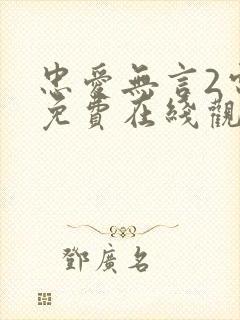 忠愛無言2
免費在綫觀
鄧廣名